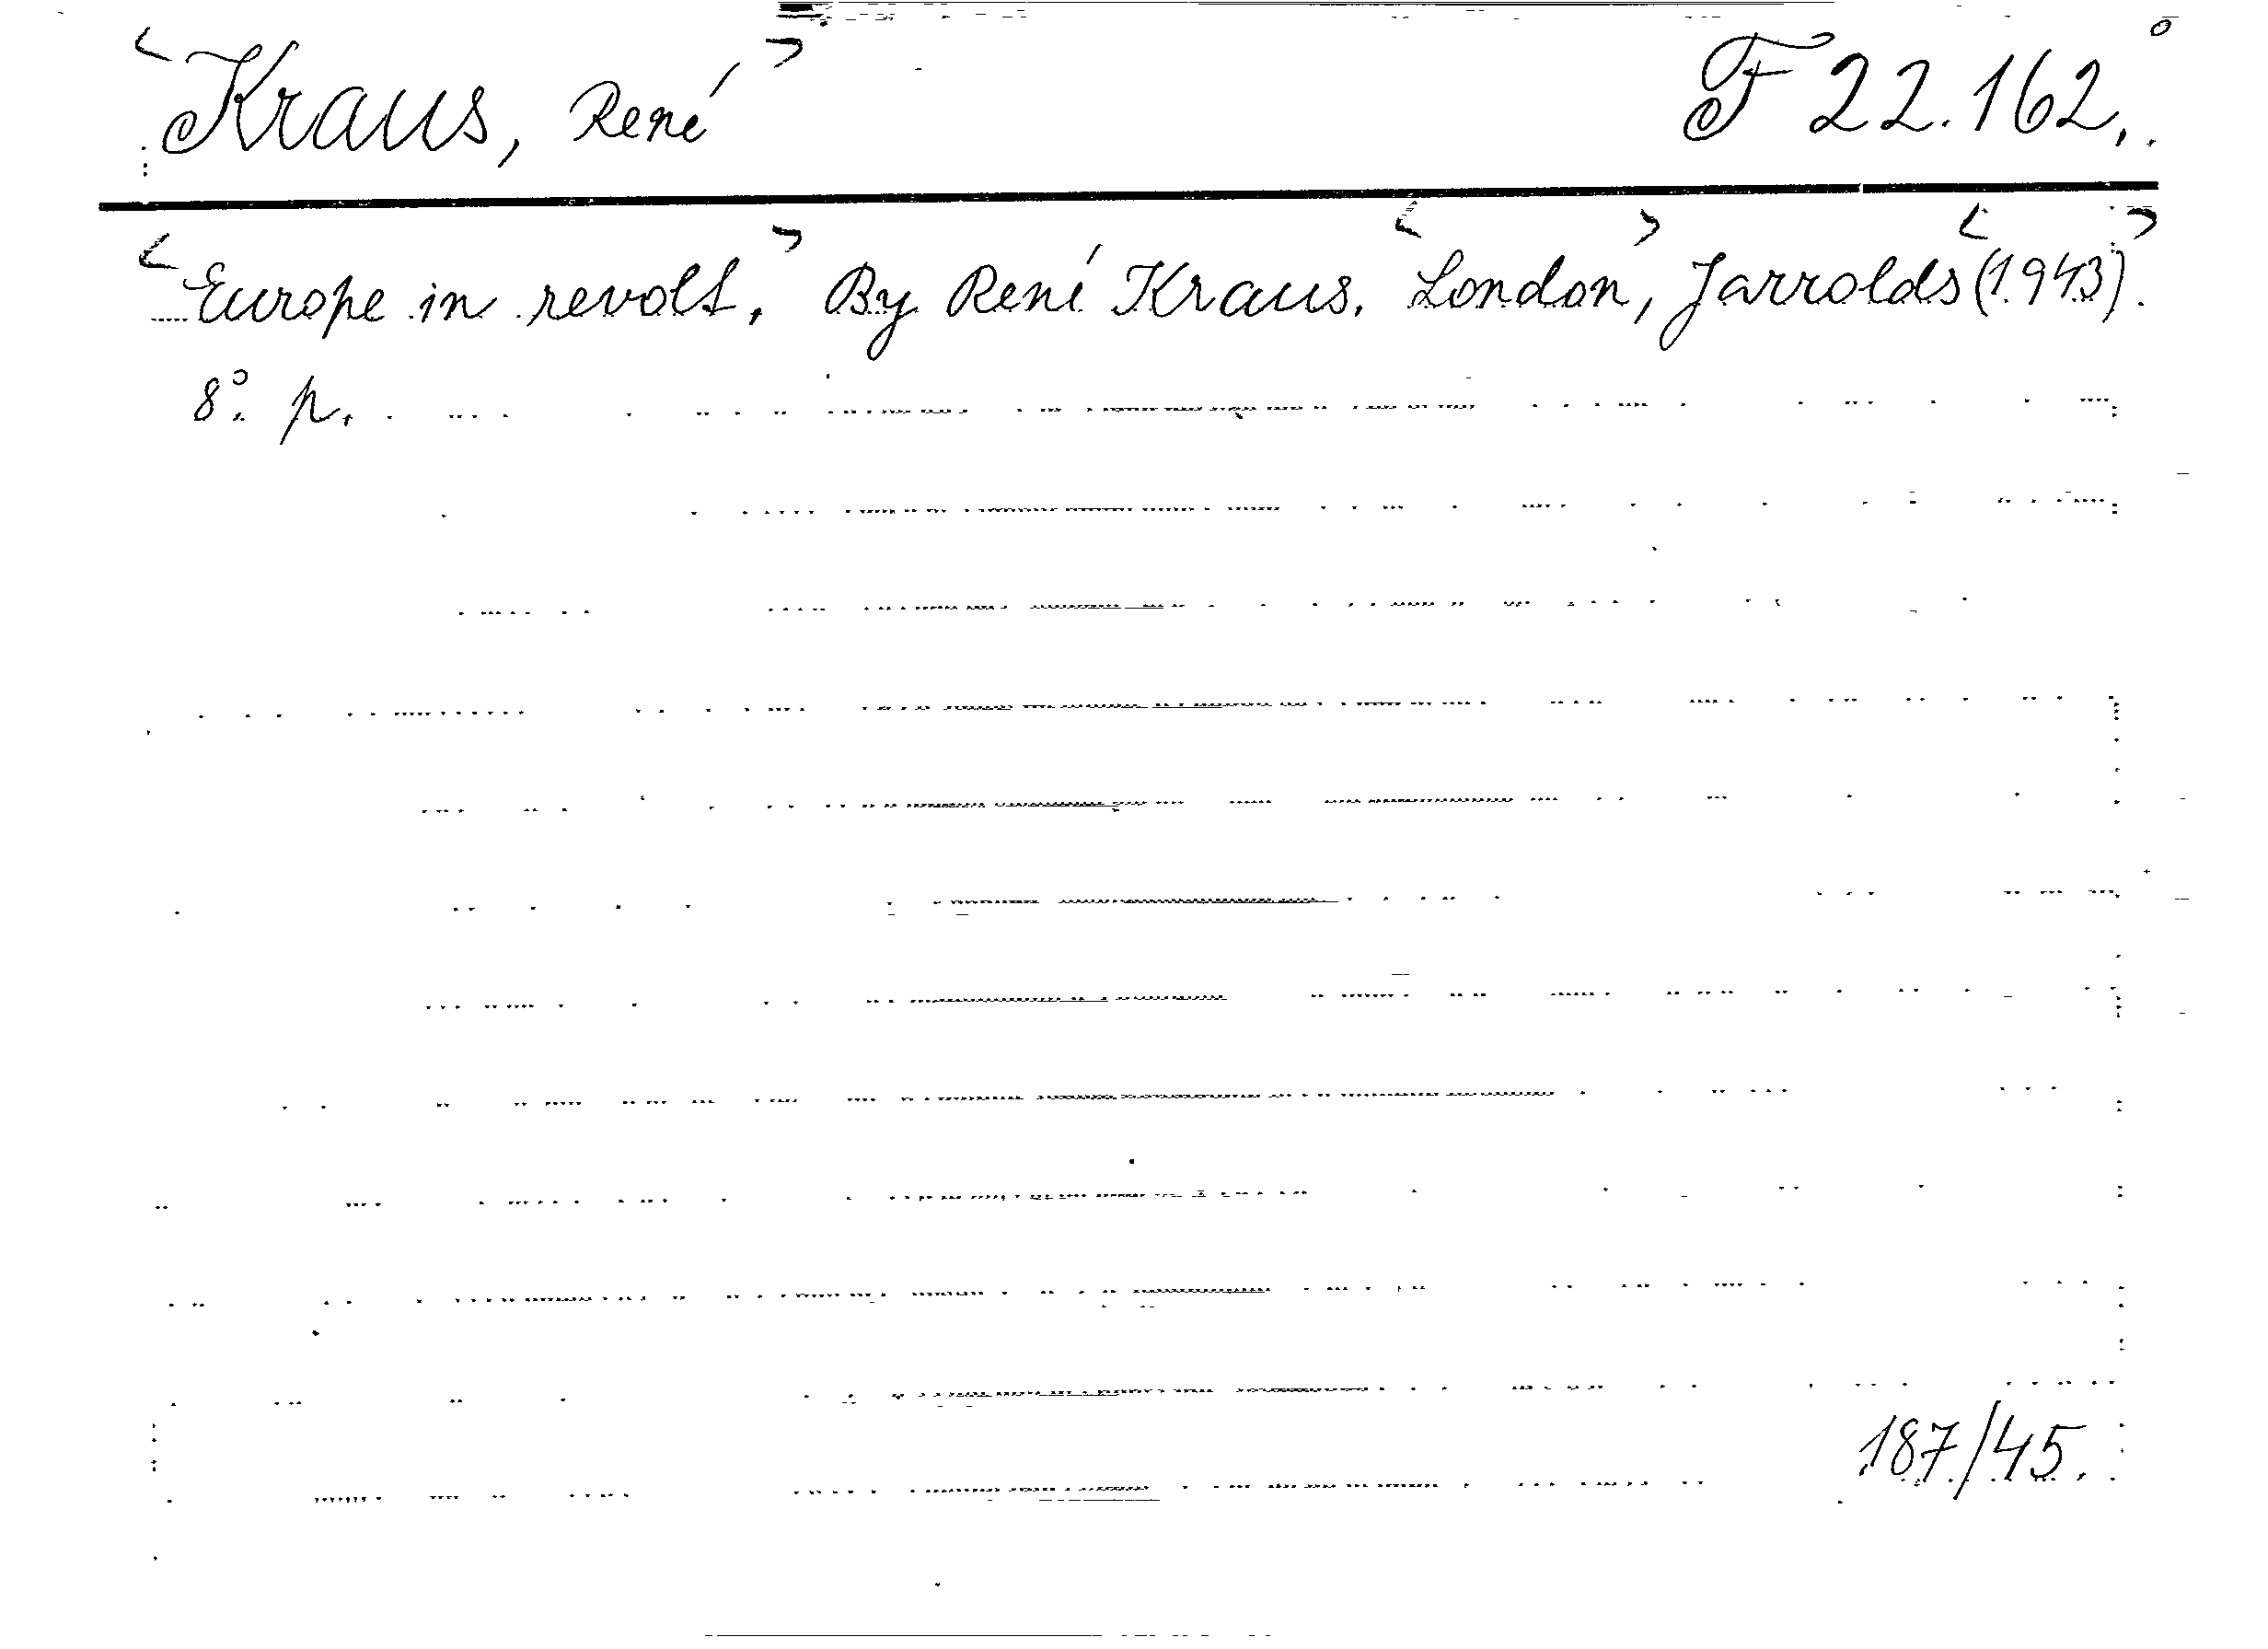 <Kraus, René> F 22.162.
<Europe in revolt.> By René Kraus. <London>, Jarrolds <(1943)>.
8° p.
187/45.